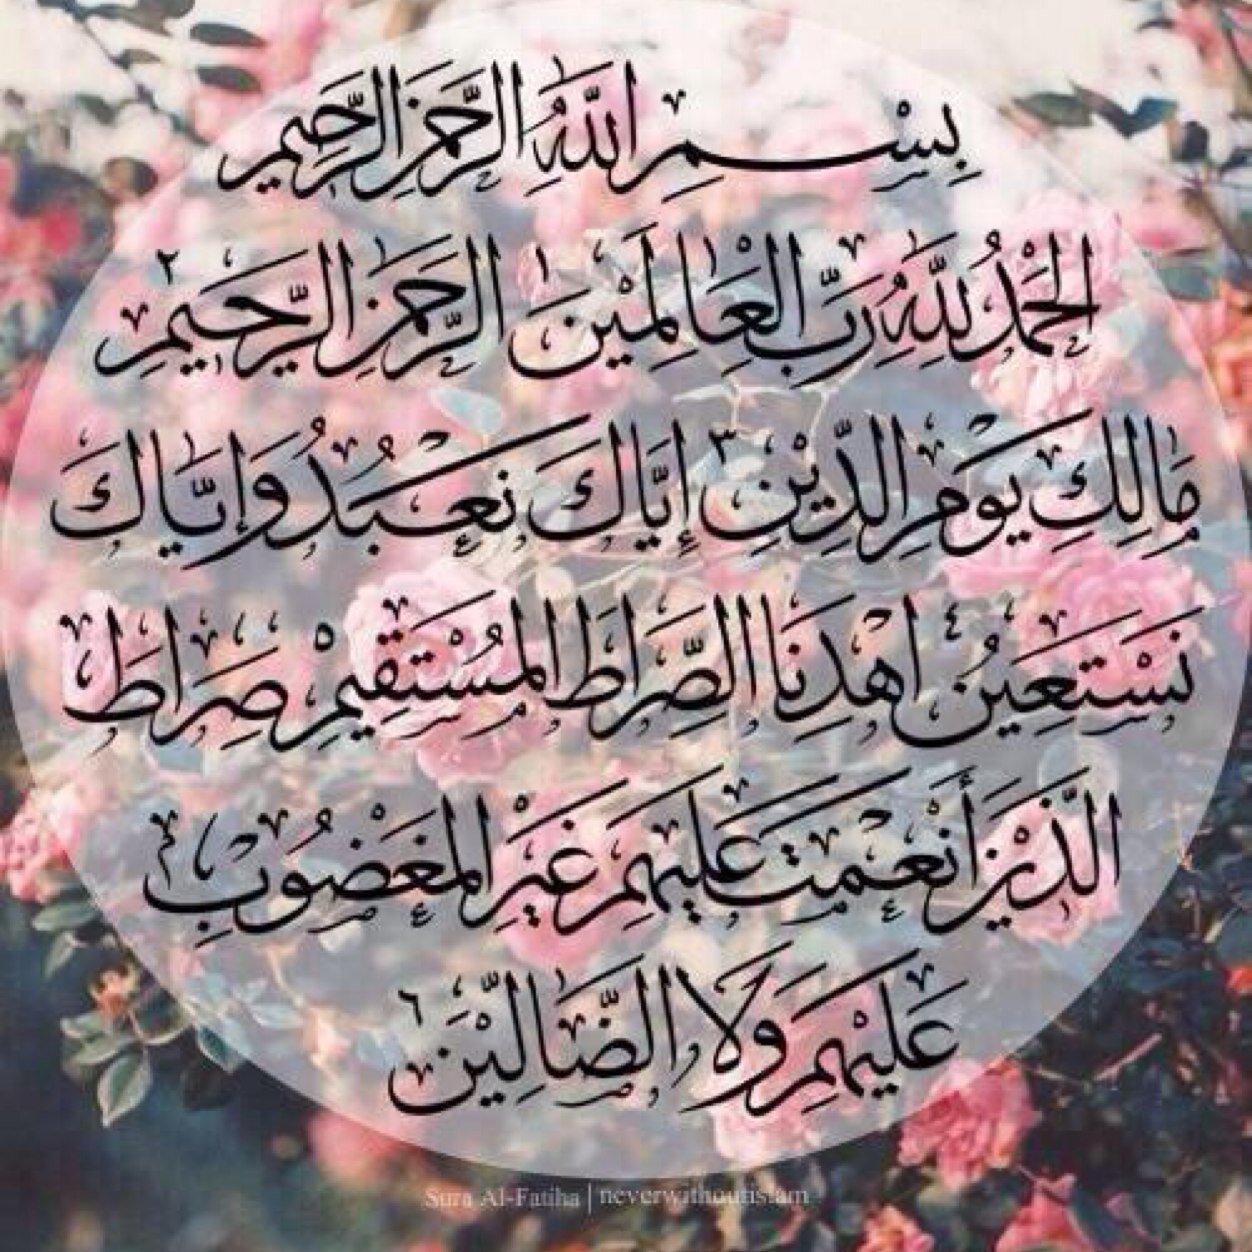 بِسْمِ اللَّهِ الرَّحْمَنِ الرَّحِيمِ
الْحَمْدُ لِلَّهِ رَبِّ الْعَالَمِيْنَ ١ الرَّحْمَنِ الرَّحِيمِ ٢
مَالِكِ يَوْمِ الدِّيْنِ ٣ إِيَّاكَ نَعْبُدُ وَإِيَّاكَ
نَسْتَعِيْنُ ٤ اهْدِنَا الصِّرَاطَ الْمُسْتَقِيمَ ٥ صِرَاطَ
الَّذِيْنَ أَنْعَمْتَ عَلَيْهِمْ غَيْرِ الْمَغْضُوْبِ
عَلَيْهِمْ وَلَا الضَّالِّيْنَ ٦
Sura Al-Fatiha | neverwithoutislam